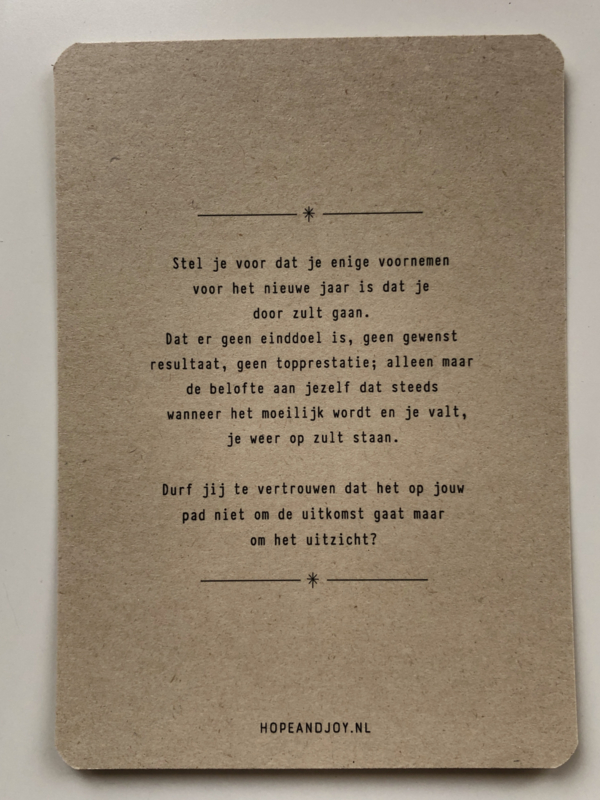 Stel je voor dat je enige voornemen
voor het nieuwe jaar is dat je
door zult gaan.
Dat er geen einddoel is, geen gewenst
resultaat, geen topprestatie; alleen maar
de belofte aan jezelf dat steeds
wanneer het moeilijk wordt en je valt,
je weer op zult staan.
Durf jij te vertrouwen dat het op jouw
pad niet om de uitkomst gaat maar
om het uitzicht?
HOPEANDJOY.NL